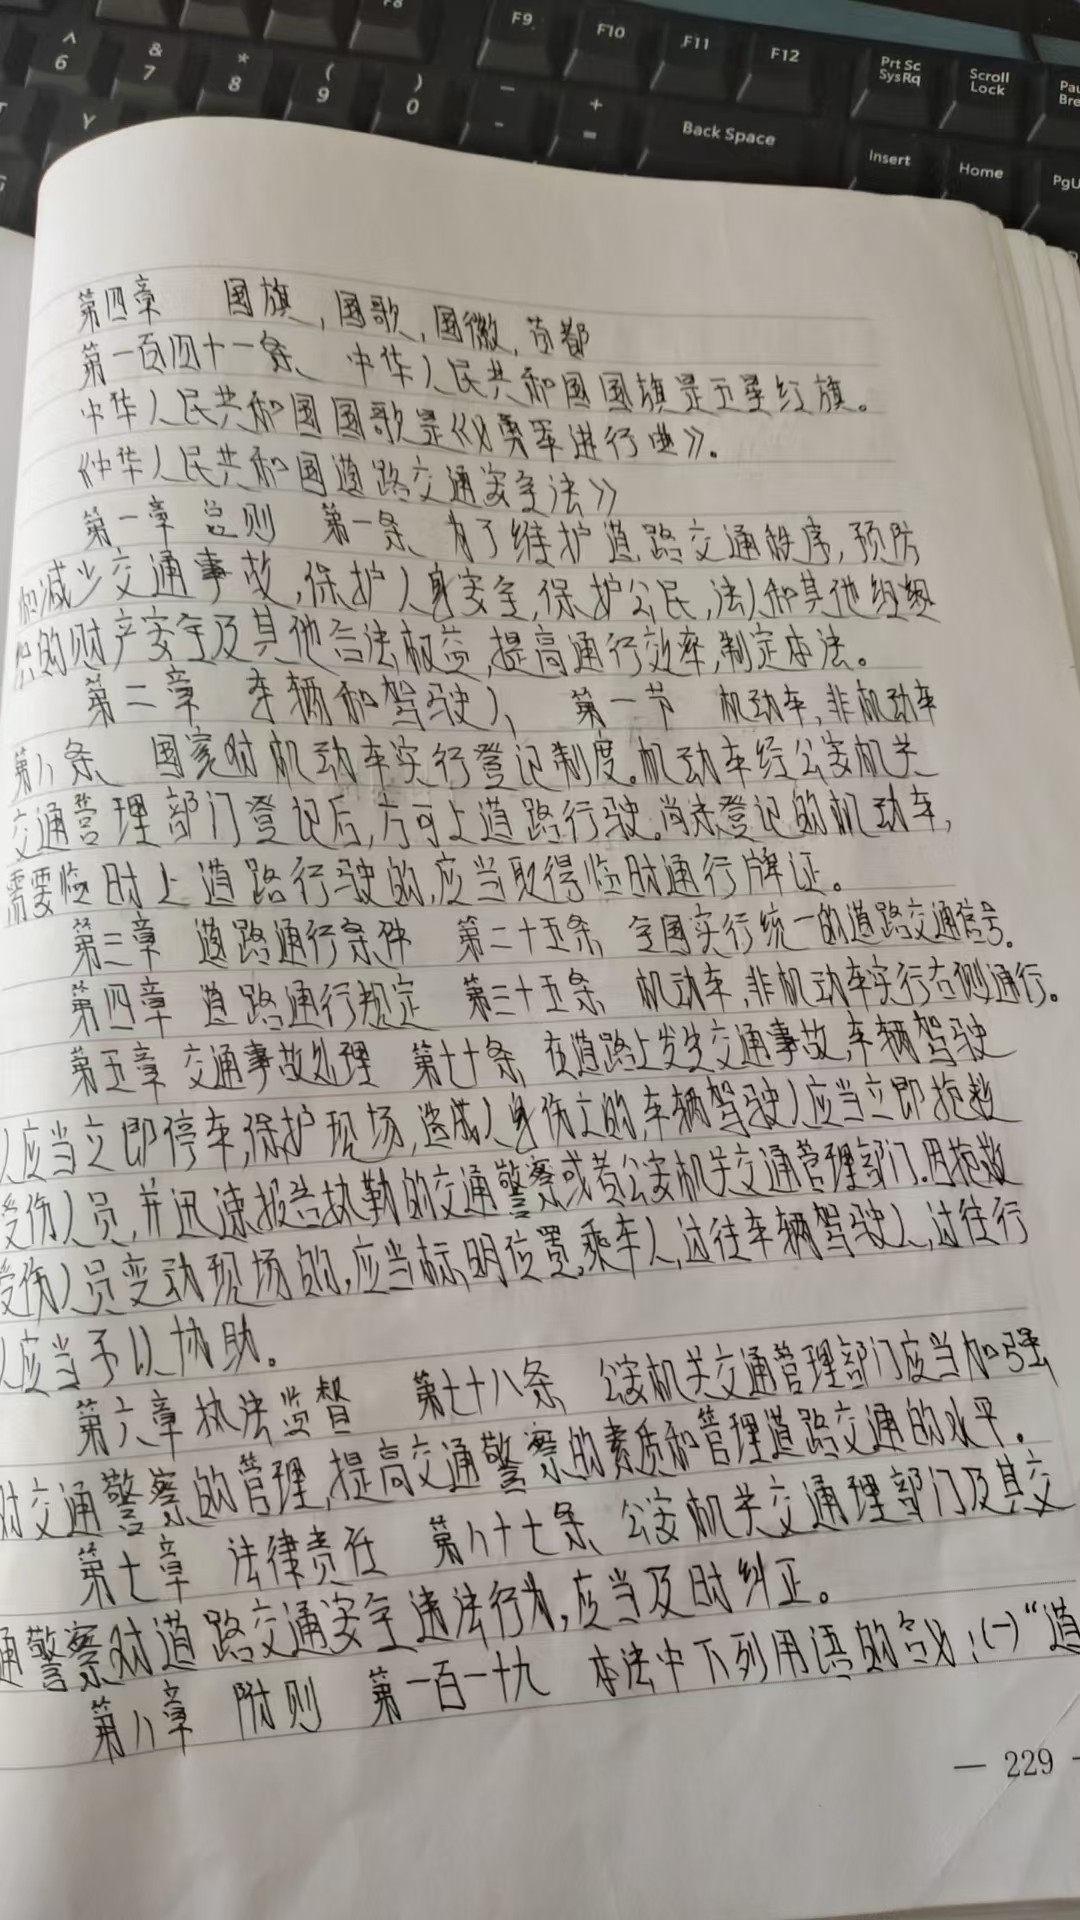 F8 F9 F10 F11 F12 Prt Sc SysRq Scroll Lock
^ 6 & 7 * 8 ( 9 ) 0 — - + = Back Space Insert Home PgU
Y
第四章 国旗,国歌,国徽,首都
第一百四十一条、中华人民共和国国旗是五星红旗。
中华人民共和国国歌是《义勇军进行曲》。
《中华人民共和国道路交通安全法》
第一章 总则 第一条、为了维护道路交通秩序,预防
和减少交通事故,保护人身安全,保护公民,法人和其他组织
织的财产安全及其他合法权益,提高通行效率,制定本法。
第二章 车辆和驾驶人、 第一节 机动车,非机动车
第八条、国家对机动车实行登记制度。机动车经公安机关
交通管理部门登记后,方可上道路行驶。尚未登记的机动车,
需要临时上道路行驶的,应当取得临时通行牌证。
第三章 道路通行条件 第二十五条、全国实行统一的道路交通信号。
第四章 道路通行规定 第三十五条、机动车,非机动车实行右侧通行。
第五章 交通事故处理 第七十条、在道路上发生交通事故,车辆驾驶
人应当立即停车,保护现场,造成人身伤亡的,车辆驾驶人应当立即抢救
受伤人员,并迅速报告执勤的交通警察或者公安机关交通管理部门.因抢救
受伤人员变动现场的,应当标明位置,乘车人,过往车辆驾驶人,过往行
人应当予以协助。
第六章 执法监督 第七十八条、公安机关交通管理部门应当加强
对交通警察的管理,提高交通警察的素质和管理道路交通的水平。
第七章 法律责任 第八十七条、公安机关交通管理部门及其交
通警察对道路交通安全违法行为,应当及时纠正。
第八章 附则 第一百一十九 本法中下列用语的含义:(一)“道
— 229 —